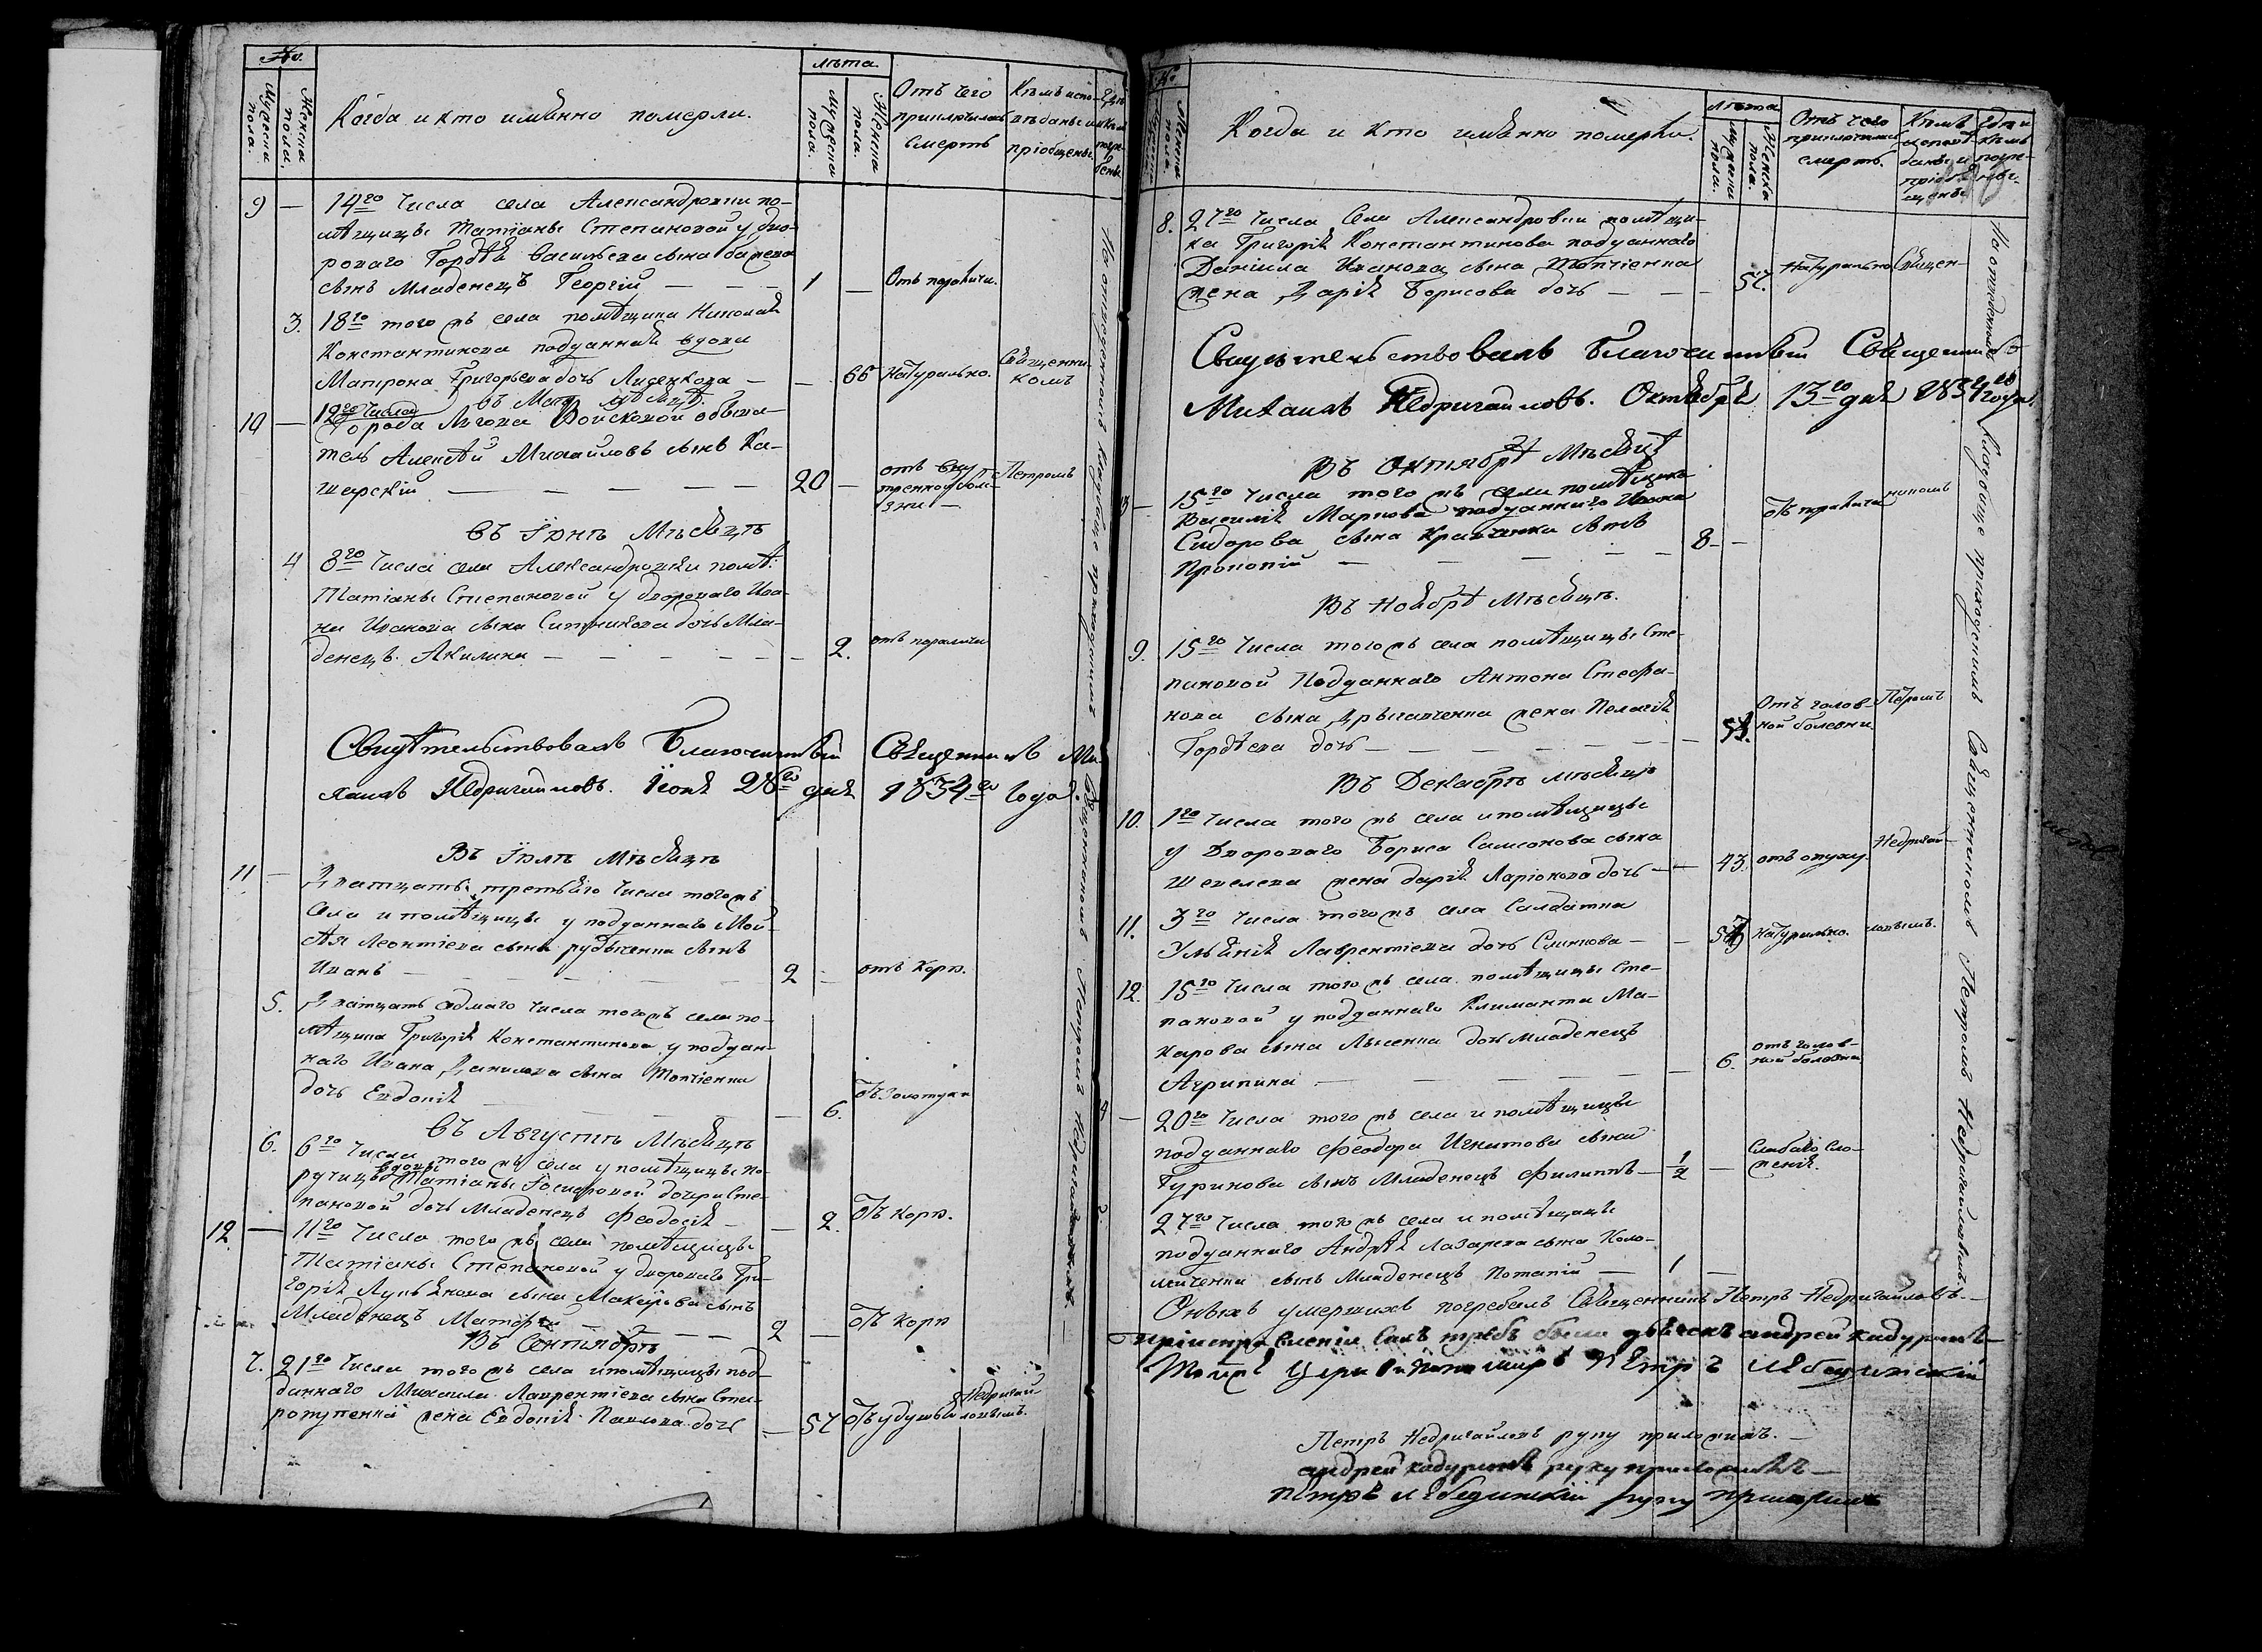 №.
Мужеска пола.
Женска пола.
Когда и кто имянно померли.
лѣта
Мужеска пола.
Женска пола.
Отъ чего
приключилась
смерть
Кѣмъ испо-
вѣданы и
пріобщены.
9 —
14го числа села Александровки по-
мѣщицы Татіаны Степановой у дво-
роваго Гордѣя Васильева сына
сынъ младенецъ Георгій — — — 1 —
Отъ паралича.
3. 18го того жъ села помѣщика Николая
Константинова подданная вдова
Матрона Григорьева дочь Лисенкова — — 66 Натурально.
Священни-
комъ
въ Маѣ мѣсяцѣ.
10 — 12го числа
Города Войсковой обыва-
тель Алексѣй Михайловъ сынъ Ка-
шерскій — — — — — 20 —
отъ вну
тренной болѣ-
зни —
Петромъ
Въ Іюнѣ Мѣсяцѣ
4 8го числа села Александровки помѣ:
Татіаны Степановой у двороваго Ива-
на Иванова сына Ситникова дочь мла-
денецъ Акилина — — — — — — 2. отъ паралича
Свидѣтельствовалъ Благочинный Священникъ Ми-
хаилъ Недригайловъ. Іюня 28го дня 1834го года.
Въ Іюлѣ Мѣсяцѣ
11 — Дватцать третьяго числа того жъ
села и помѣщицы у подданнаго Мой-
сѣя Леонтіева сына сынъ
Иванъ — — — — — 2 — отъ кори.
5. Дватцать седмаго числа того жъ села по-
мѣщика Григорія Константинова у поддан-
наго Ивана Данилова сына Топчіенка
дочь Евдокія — — — — — 6. Отъ золотухи
Въ Августѣ Мѣсяцѣ
6. 6го числа того жъ села у помѣщицы по-
ручицы вдовы Татіаны дочери Сте-
пановой дочь младенецъ Феодосія — — 2. Отъ кори.
12. — 11го числа того жъ села помѣщицы
Татіаны Степановой у двороваго Гри-
горія сына Макеѣва сынъ
младенецъ Матфей — — — — 2 — Отъ кори
Въ Сентябрѣ
7. 21го числа того жъ села и помѣщицы под-
даннаго Михаила Лаврентіева сына
жена Евдокія Павлова дочь — 57 Отъ удушья
Недригай
ловымъ.
На отведенномъ кладбищѣ приходскимъ Священникомъ Петромъ Недригайловымъ —
№.
Женска пола.
Когда и кто имянно померли.
лѣта
Мужеска пола.
Женска пола.
Отъ чего
приключилась
смерть.
Кѣмъ
исповѣ-
даны и
пріоб-
щены
Гдѣ и
кѣмъ
погре-
бены.
8. 27го числа села Александровки помѣщи-
ка Григорія Константинова подданнаго
Даніила Иванова сына Топчіенка
жена Дарія Борисова дочь — — — 57. Натурально Священ-
Свидѣтельствовалъ Благочинный Священникъ
Михаилъ Недригайловъ. Октября 13го дня 1834го года.
Въ Октябрѣ Мѣсяцѣ
— 15го числа того жъ села помѣщика
Василія Маркова подданнаго Ивана
Сидорова сына Кравченка сынъ
Прокопій — — — — — 8 — —
отъ
никомъ
Въ Ноябрѣ Мѣсяцѣ.
9. 15го числа того жъ села помѣщицы Сте-
пановой подданнаго Антона Стефа-
нова сына жена Пелагія
Гордѣева дочь — — — — — —
Отъ голов-
ной болезни
Петромъ
Въ Декабрѣ мѣсяцѣ
10. 1го числа того жъ села и помѣщицы
у Двороваго Бориса Самсонова сына
Шевелева жена Дарія Ларіонова дочь — — 43. отъ опуху.
Недригай-
11. 3го числа того жъ села Салдатка
Ульянія Лаврентіева дочь Слинкова — — Натурально. ловымъ.
12. 15го числа того жъ села помѣщицы Сте-
пановой у подданнаго Климанта Ма-
карова сына Лысенка дочь младенецъ
Агрипина — — — — — 6.
отъ голов-
ной болезни
— 20го числа того жъ села и помѣщицы
подданнаго Феодора Игнатова сына
Туринова сынъ младенецъ Филиппъ — 1/2 —
Слабаго сло-
женія.
27го числа того жъ села и помѣщицы
подданнаго Андрѣя Лазарева сына Коло-
мійченка сынъ младенецъ Потапій — 1 —
Оныхъ умершихъ погребалъ Священникъ Петръ Недригайловъ. —
при исправленіи сихъ требъ были дьячекъ андрей кадуринъ —
Петръ Лебединскій
Петръ Недригайловъ руку приложилъ. —
андрей кадуринъ руку приложилъ —
Петръ Лебединскій руку приложилъ
На отведенномъ кладбищѣ приходскимъ Священникомъ Петромъ Недригайловымъ.